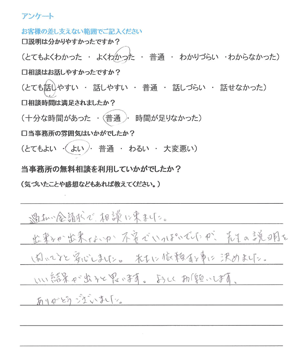 アンケート
お客様の差し支えない範囲でご記入ください
□説明は分かりやすかったですか？
（とてもよくわかった ・ よくわかった ・ 普通 ・ わかりづらい ・わからなかった）
□相談はお話しやすかったですか？
（とても話しやすい ・ 話しやすい ・ 普通 ・ 話しづらい ・ 話せなかった）
□相談時間は満足されましたか？
（十分な時間があった ・ 普通 ・ 時間が足りなかった）
□当事務所の雰囲気はいかがでしたか？
（とてもよい ・ よい ・ 普通 ・ わるい ・ 大変悪い）
当事務所の無料相談を利用していかがでしたか？
（気づいたことや感想などもあれば教えてください。）
過払い金請求で相談に来ました。
出来るか出来ないか不安でいっぱいでしたが、先生の説明を
聞いてると安心しました。先生に依頼する事に決めました。
いい結果が出ると思います。よろしくお願いします。
ありがとうございました。